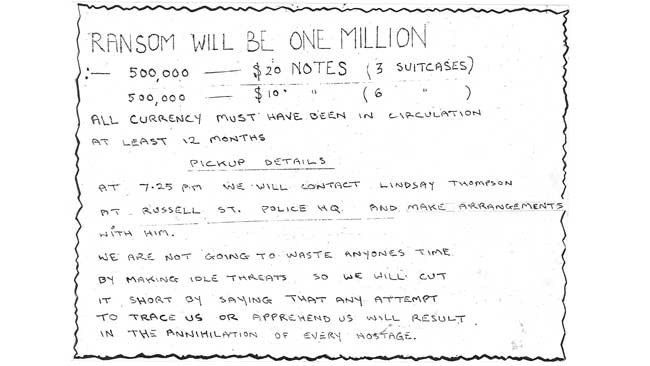 RANSOM WILL BE ONE MILLION
:— 500,000 — $20 NOTES (3 SUITCASES)
500,000 — $10· " (6 " )
ALL CURRENCY MUST HAVE BEEN IN CIRCULATION
AT LEAST 12 MONTHS
PICKUP DETAILS
AT 7.25 PM WE WILL CONTACT LINDSAY THOMPSON
AT RUSSELL ST. POLICE HQ. AND MAKE ARRANGEMENTS
WITH HIM.
WE ARE NOT GOING TO WASTE ANYONES TIME
BY MAKING IDLE THREATS SO WE WILL CUT
IT SHORT BY SAYING THAT ANY ATTEMPT
TO TRACE US OR APPREHEND US WILL RESULT
IN THE ANNIHILATION OF EVERY HOSTAGE.